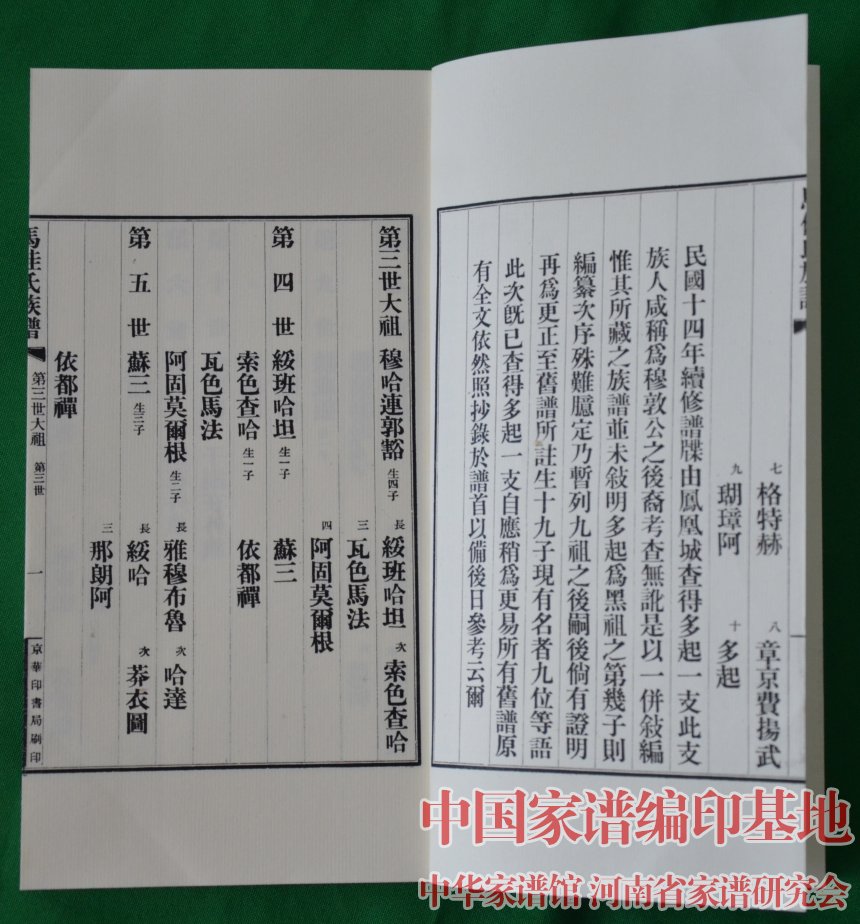 七 格特赫 八 章京費揚武
九 瑚璋阿 十 多起
民國十四年續修譜牒由鳳凰城查得多起一支此支
族人咸稱爲穆敦公之後裔考查無訛是以一併敍編
惟其所藏之族譜並未敍明多起爲黑祖之第幾子則
編纂次序殊難臆定乃暫列九祖之後嗣後倘有證明
再爲更正至舊譜所註生十九子現有名者九位等語
此次旣已查得多起一支自應稍爲更易所有舊譜原
有全文依然照抄錄於譜首以備後日參考云爾
第三世大祖 穆哈連郭豁 生四子 長 綏班哈坦 次 索色查哈
三 瓦色馬法
四 阿固莫爾根
第四世 綏班哈坦 生一子 蘇三
索色查哈 生一子 依都禪
瓦色馬法
阿固莫爾根 生二子 長 雅穆布魯 次 哈達
第五世 蘇三 生三子 長 綏哈 次 莽衣圖
三 那朗阿
依都禪
馬佳氏族譜 第三世大祖 第三世 一 京華印書局刷印
中国家谱编印基地
中华家谱馆 河南省家谱研究会